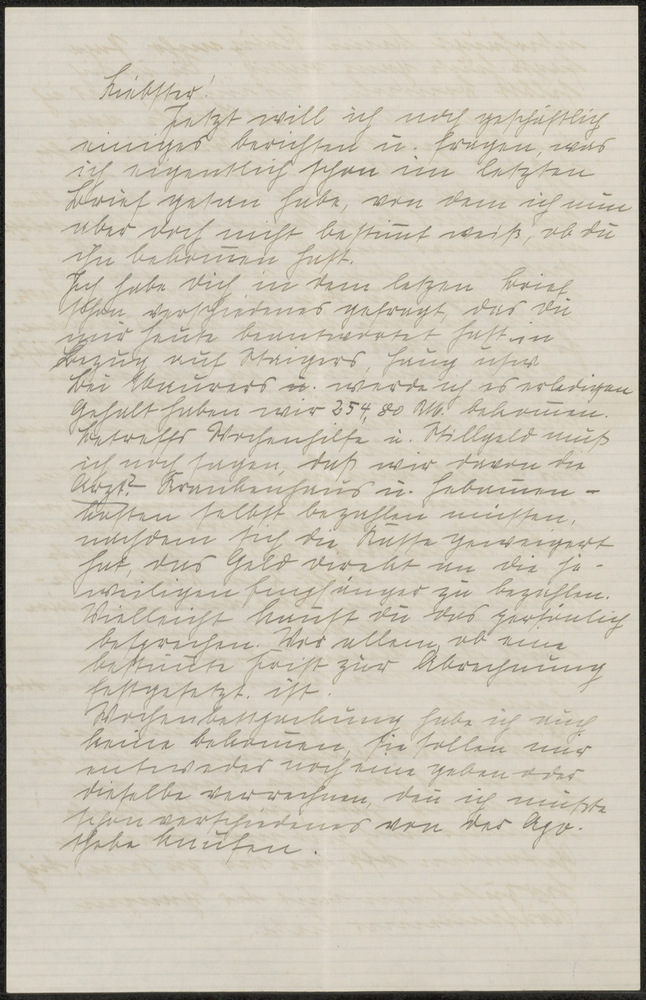 Liebster!
Jetzt will ich noch geschäftlich
einiges berichten u. fragen, was
ich eigentlich schon im letzten
Brief getan habe, von dem ich nun
aber doch nicht bestimmt weiß, ob du
ihn bekommen hast.
Ich habe dich in dem letzen Brief
schon verschiedenes gefragt, das du
mir heute beantwortet hast in
Bezug auf Staigers, Haug usw
Bei Maurers u. werde ich es erledigen
Gehalt haben wir 254,80 RM. bekommen.
Betreffs Wochenhilfe u. Stillgeld muß
ich noch sagen, daß wir davon die
Arzt? Krankenhaus u. Hebammen-
kosten selbst bezahlen müssen,
nachdem sich die Kasse geweigert
hat, das Geld direkt an die je-
weiligen Empfänger zu bezahlen.
Vielleicht kannst du das persönlich
besprechen. Vor allem, ob eine
bestimmte Frist zur Abrechnung
festgesetzt ist.
Wochenbettpackung habe ich auch
keine bekommen, sie sollen nur
entweder noch eine geben oder
dieselbe verrechnen, den ich mußte
schon verschiedenes von der Apo-
theke kaufen.